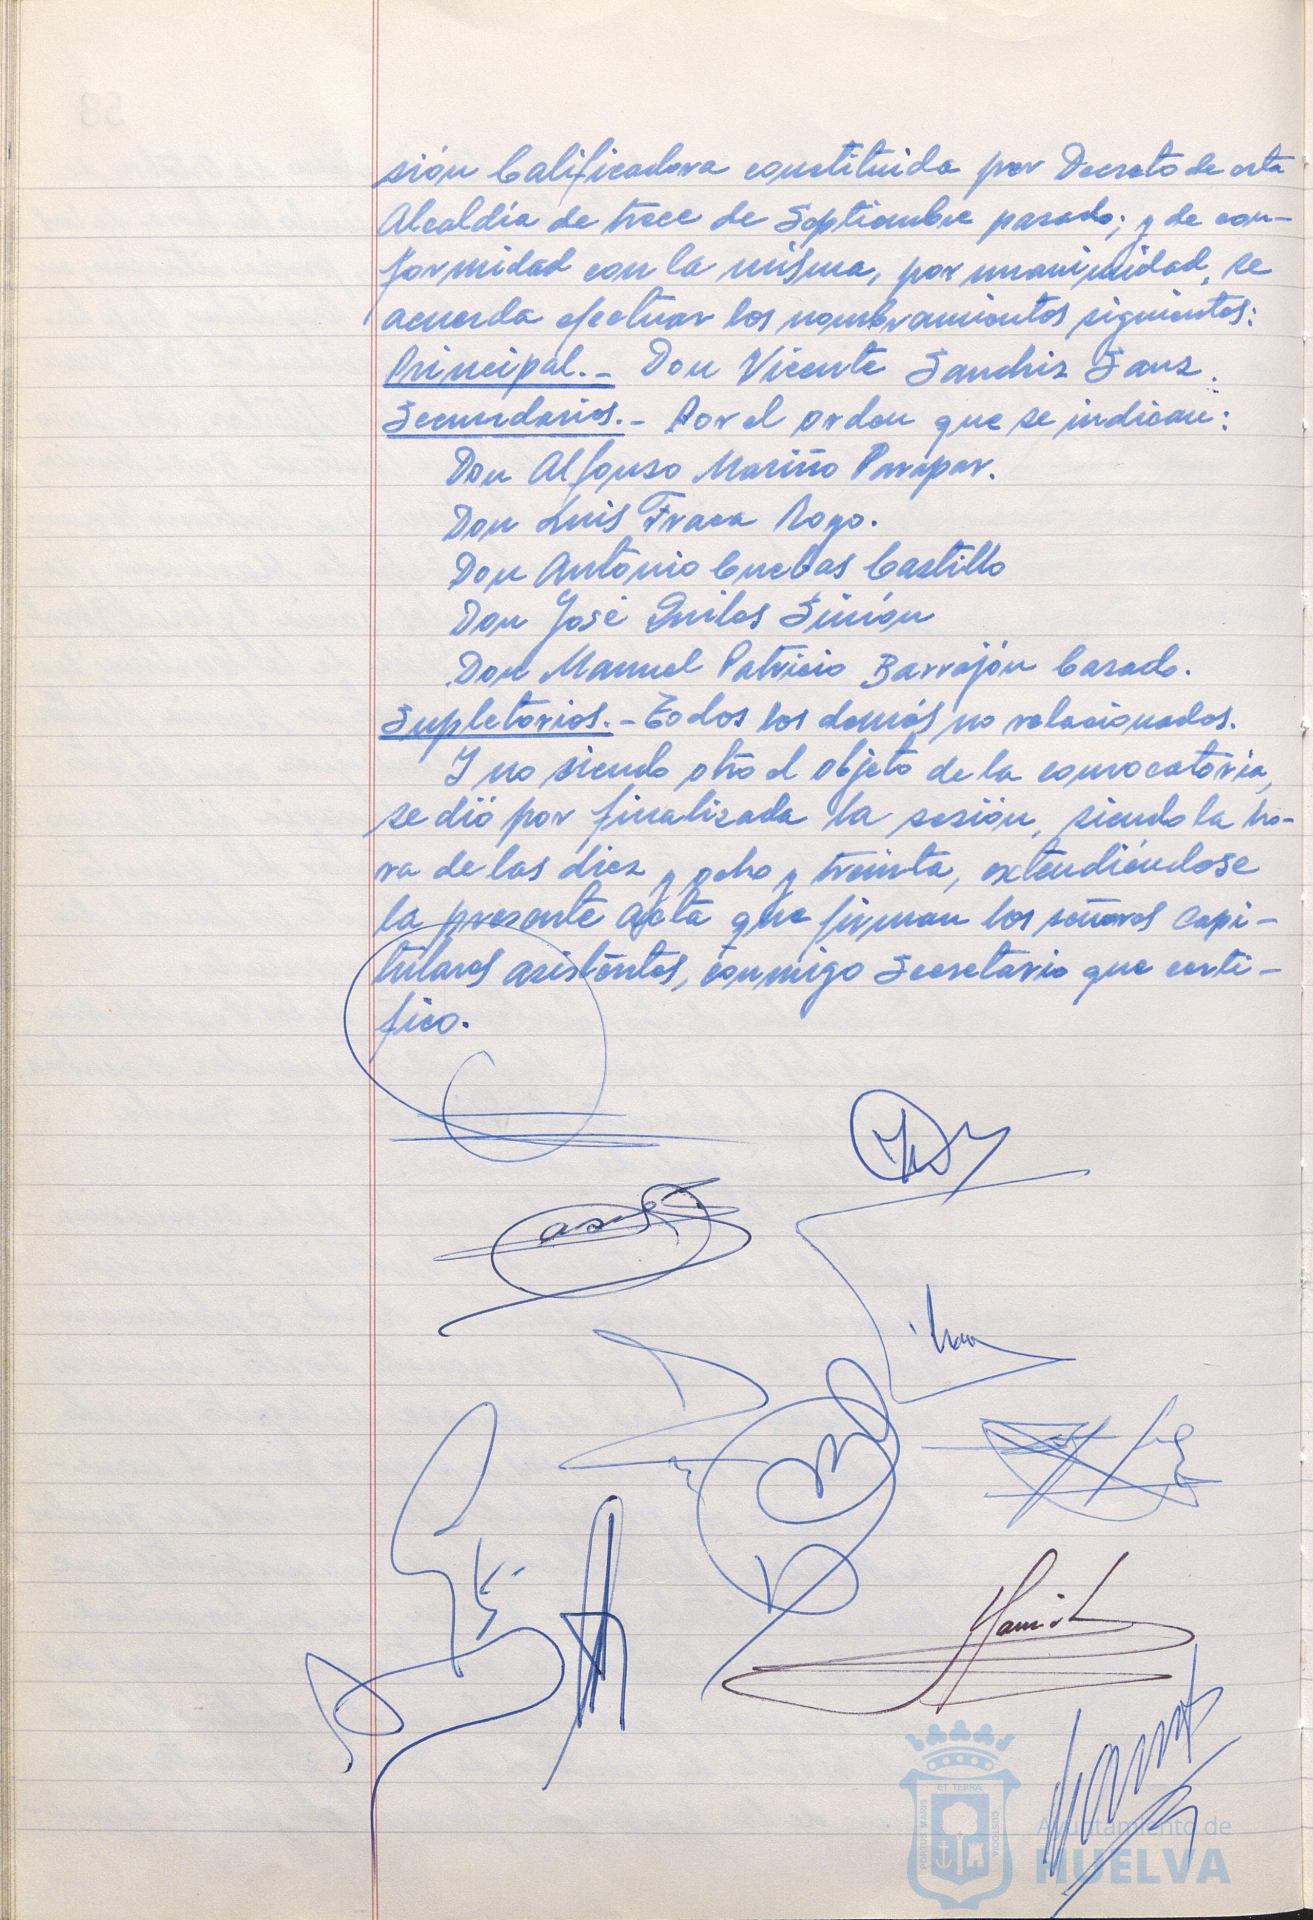 sión Calificadora constituida por Decreto de esta
Alcaldía de trece de Septiembre pasado; y de con-
formidad con la misma, por unanimidad, se
acuerda efectuar los nombramientos siguientes:
Principal.- Don Vicente Sanchiz Sanz.
Secundarios.- Por el orden que se indican:
Don Alfonso Mariño Parapar.
Don Luis Fraca Royo.
Don Antonio Cuebas Castillo
Don José Quiles Simón
Don Manuel Patricio Barrajón Casado.
Supletorios.- Todos los demás no relacionados.
Y no siendo otro el objeto de la convocatoria,
se dió por finalizada la sesión, siendo la ho-
ra de las diez y ocho y treinta, extendiéndose
la presente acta que firman los señores Capi-
tulares asistentes, conmigo Secretario que certi-
fico.
PORTUS MARIS
ET TERRÆ
CUSTODIA
Ayuntamiento de
HUELVA